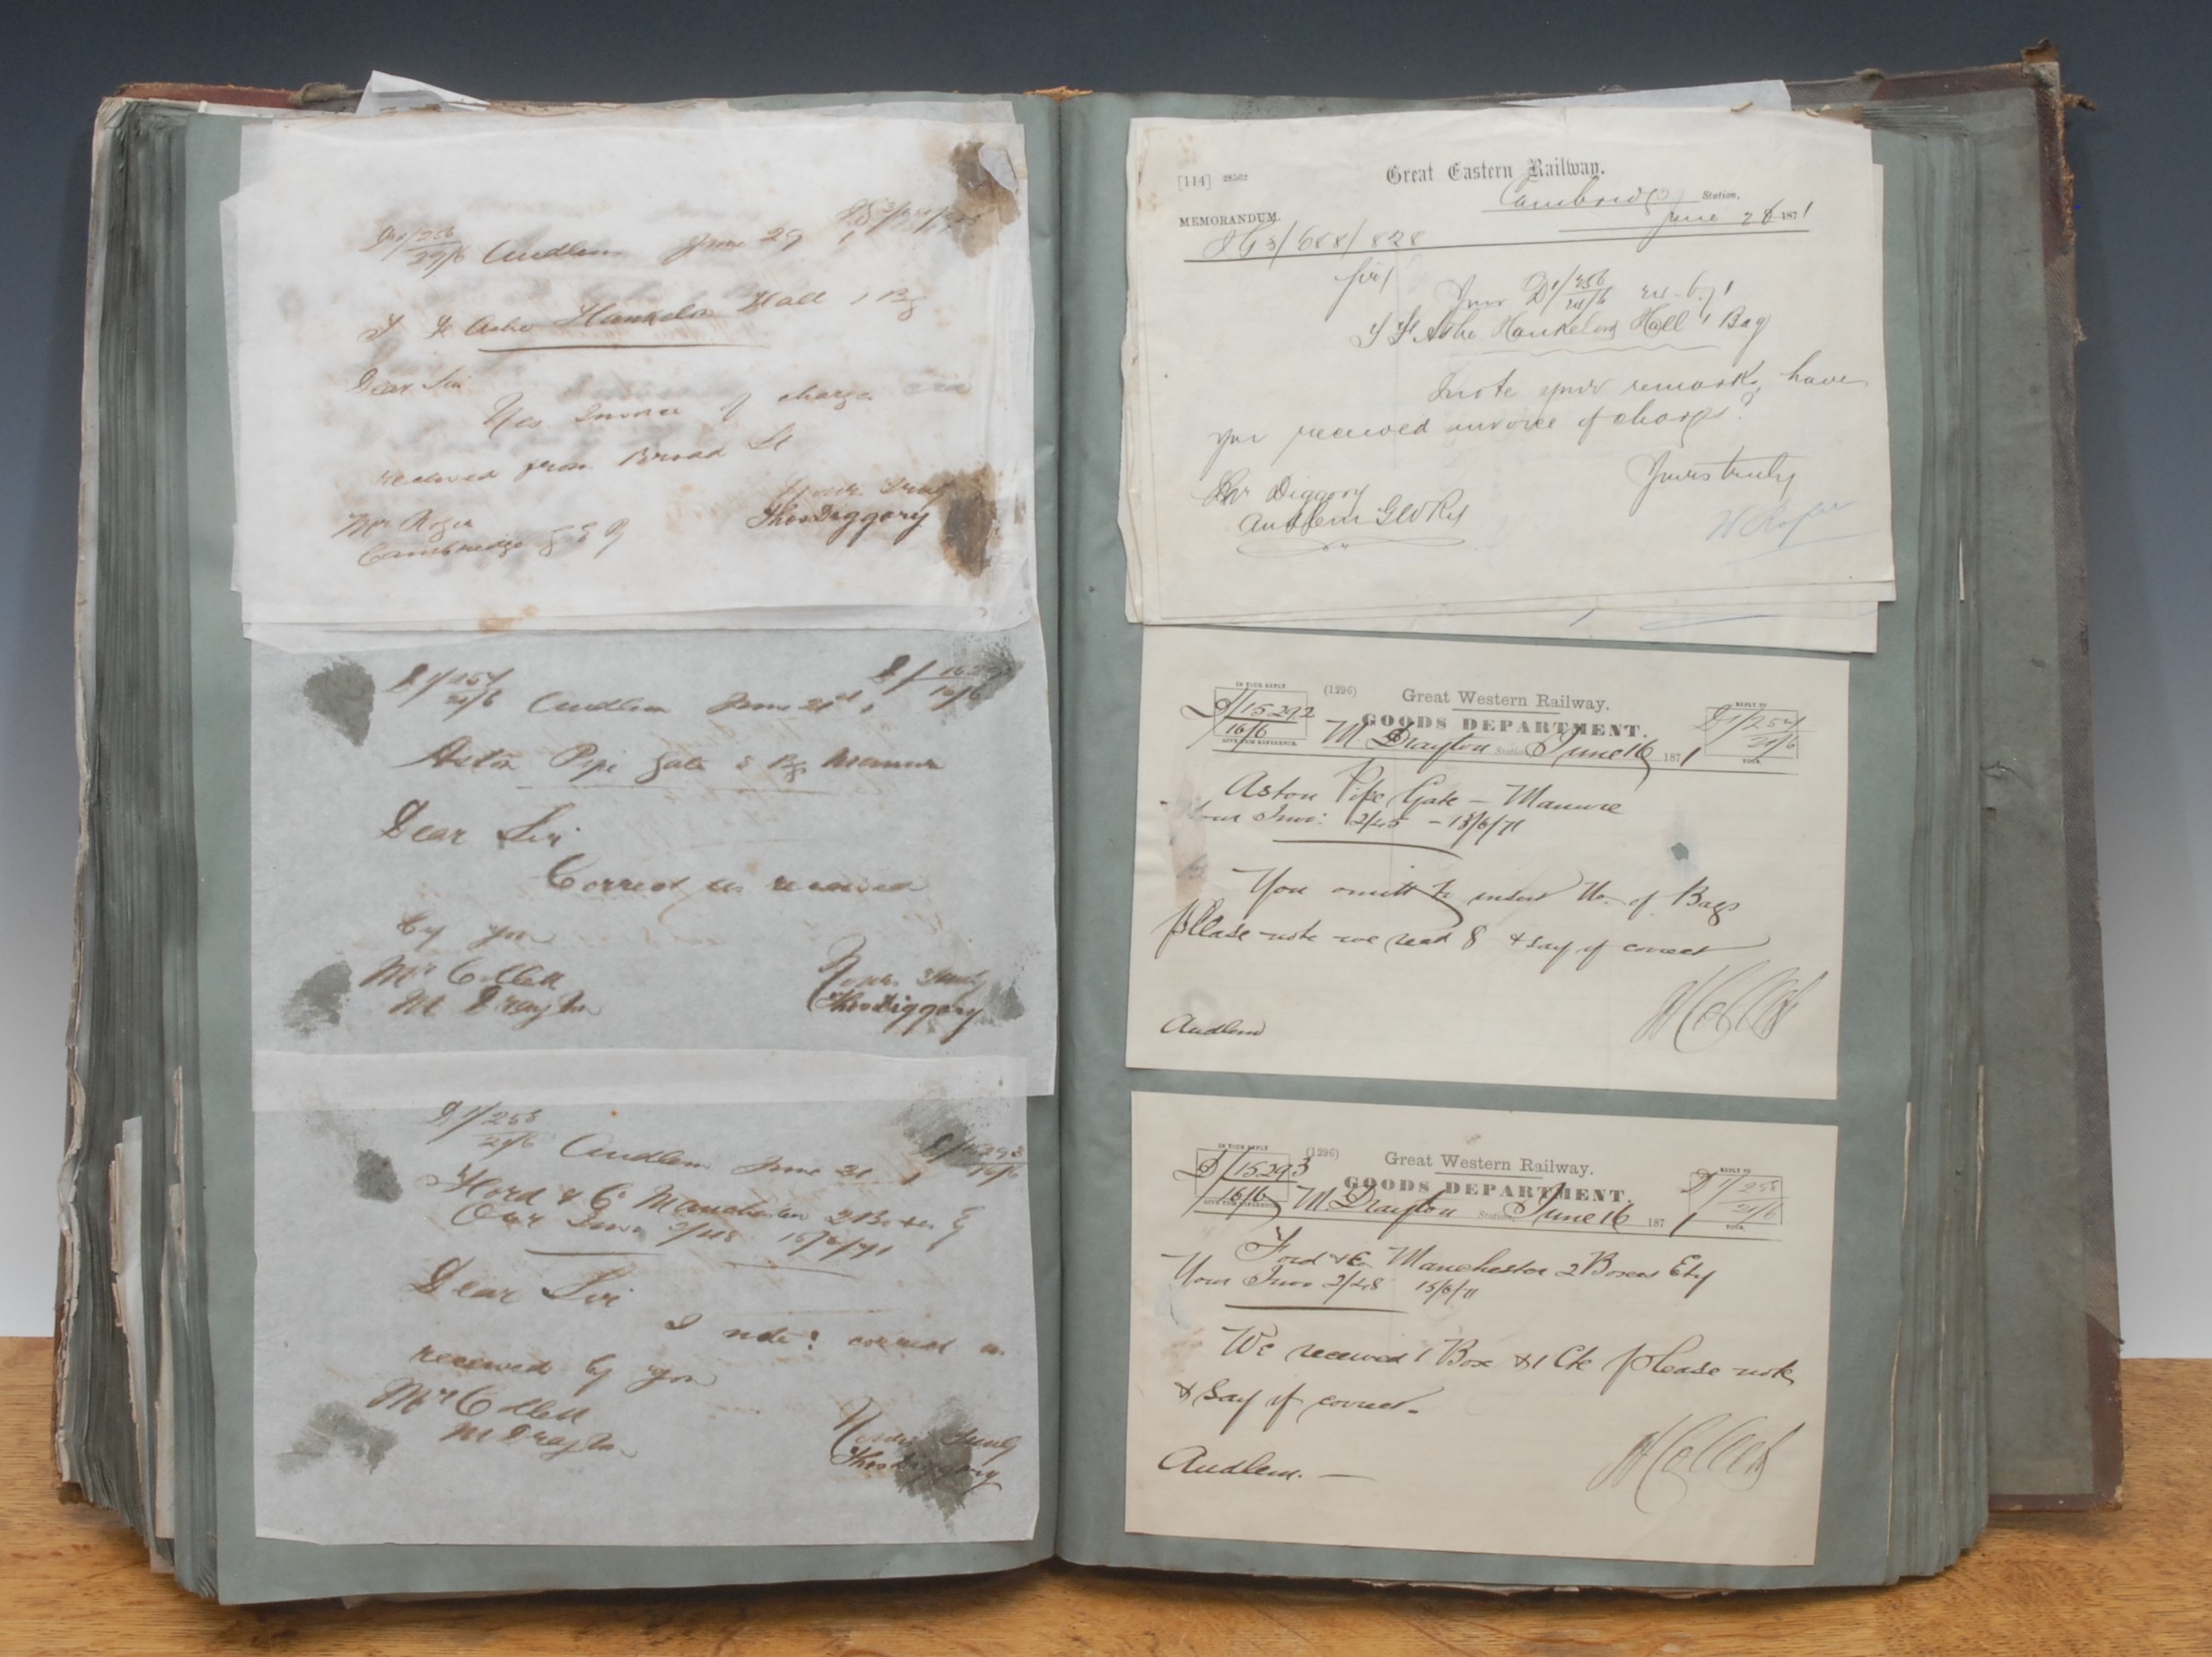 D1/256
29/6 Audlem June 29 1
T H Ashe Hankelow Hall 1 Bg
Dear Sir
Yes Invoice of charge
received from Broad St
Yours Truly
Mr Roger ThosDiggory
Cambridge G E Ry
D1/254
21/6 Audlem June 21st 1 D/15292
16/6
Aston Pipe Gate 8 Bgs Manure
Dear Sir
Correct as received
by you
Mr Collett Yours Truly
M Drayton ThosDiggory
D1/253
21/6 Audlem June 21 1 D/15293
16/6
Ford & Co Manchester 2 Boxes Ety
Our Invo 2/48 15/6/71
Dear Sir
I note: correct as
received by you
Mr Collett
M Drayton Yours Truly
ThosDiggory
[114] 28502 Great Eastern Railway.
Cambridge Station,
MEMORANDUM. June 28 1871
G3/688/828
Sir
Your D1/256
T H Ashe Hankelow Hall 1 Bag
I note your remarks, have
you received invoice of charge?
Yours truly
Mr Diggory
Audlem GW Ry
W Roger
IN YOUR REPLY (1296) Great Western Railway. REPLY TO
D/15292 GOODS DEPARTMENT. D1/254
16/6 M Drayton Station June 16 1871 21/6
GIVE THIS REFERENCE. YOUR
Aston Pipe Gate - Manure
Your Invo: 2/45 - 13/6/71
You omitt to insert No. of Bags
please note we recd 8 & say if correct
H Collett
Audlem
IN YOUR REPLY (1296) Great Western Railway. REPLY TO
D/15293 GOODS DEPARTMENT. D1/253
16/6 M Drayton Station June 16 1871 21/6
GIVE THIS REFERENCE. YOUR
Ford & Co Manchester 2 Boxes Ety
Your Invo 2/48 15/6/71
We received 1 Box & 1 Cte please note
& say if correct.
H Collett
Audlem. —